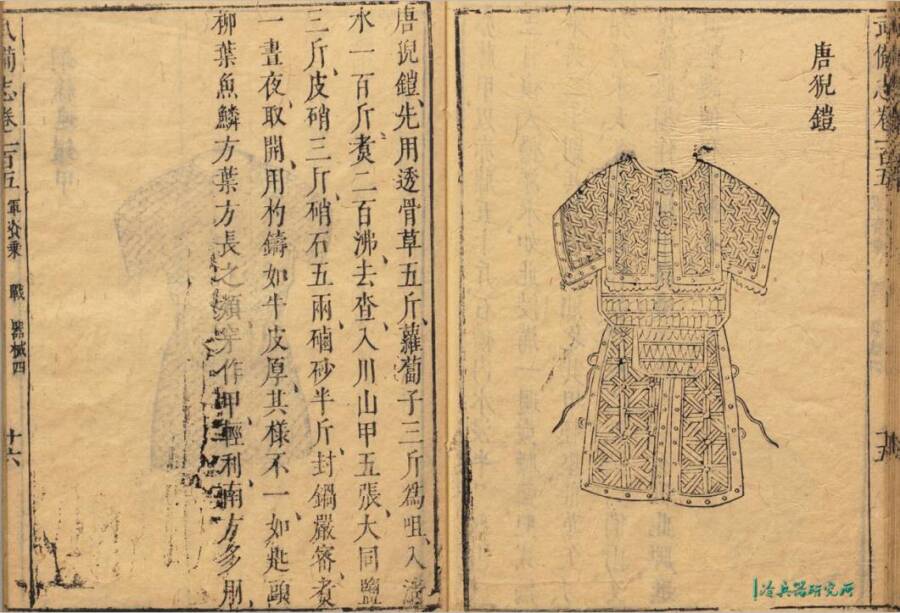 武備志卷一百五
十五
唐猊鎧
唐猊鎧先用透骨草五斤蘿蔔子三斤爲咀入清
水一百斤煑二百沸去查入川山甲五張大同鹽
三斤皮硝三斤硝石五兩硇砂半斤封鍋嚴審煑
一晝夜取開用杓鑄如牛皮厚其樣不一如匙頭
柳葉魚鱗方葉方長之類穿作甲輕利南方多用
武備志卷一百五 軍資乘 戰 器械四 十六
冷兵器研究所